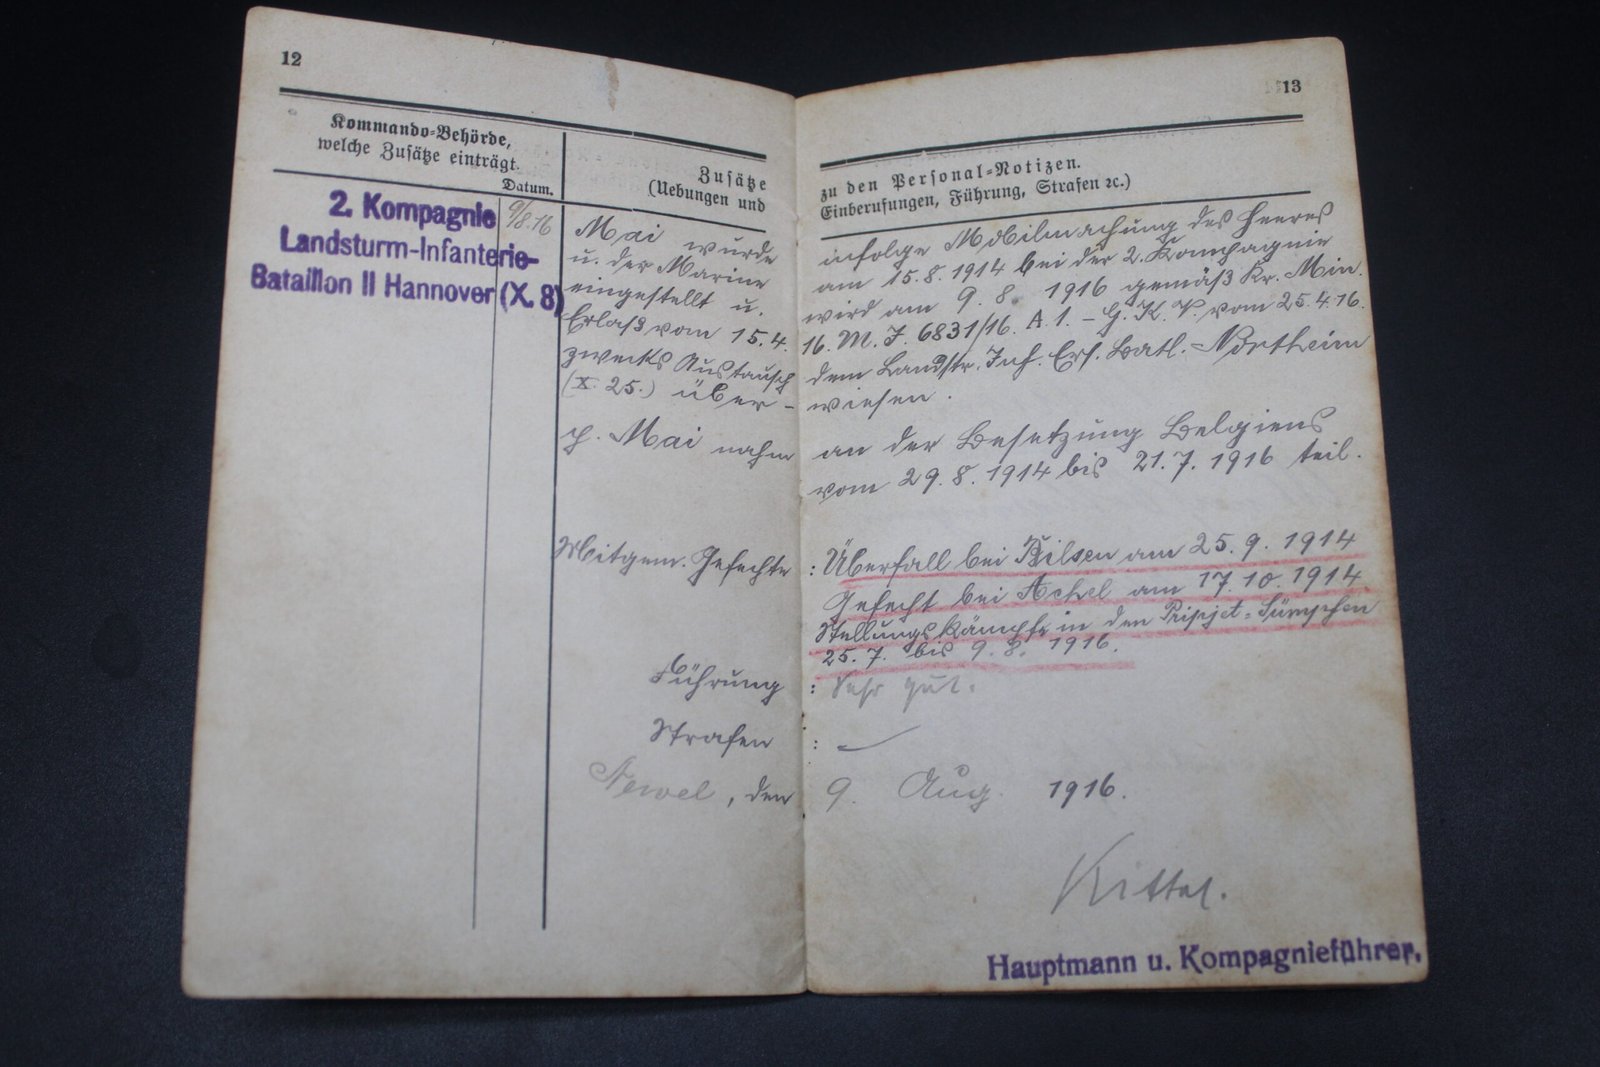 12
Kommando-Behörde,
welche Zusätze einträgt.
Datum.
Zusätze
(Uebungen und
2. Kompagnie
Landsturm-Infanterie-
Bataillon II Hannover (X. 8)
9/8.16
Mai wurde
u. der Marine
eingestellt u.
Erlaß vom 15.4.
zwecks Austausch
(X. 25.) über-
p. Mai nahm
Mitgem. Gefechte
Führung
Strafen
, den
13
zu den Personal-Notizen.
Einberufungen, Führung, Strafen ꝛc.)
infolge Mobilmachung des Heeres
am 15.8.1914 bei der 2. Kompagnie
wird am 9. 8. 1916 gemäß Kr. Min.
16. M. J. 6831/16. A.1. – G. K. vom 25.4.16.
dem Landstr. Inf. Ers. Batl. Northeim
wiesen.
an der Besetzung Belgiens
vom 29.8.1914 bis 21.7.1916 teil.
: Überfall bei Bilsen am 25.9.1914
Gefecht bei Achel am 17.10.1914
Stellungskämpfe in den Pripjet-Sümpfen
25.7. bis 9.8. 1916.
: Sehr gut.
: –
9. Aug. 1916.
Kittel.
Hauptmann u. Kompagnieführer.